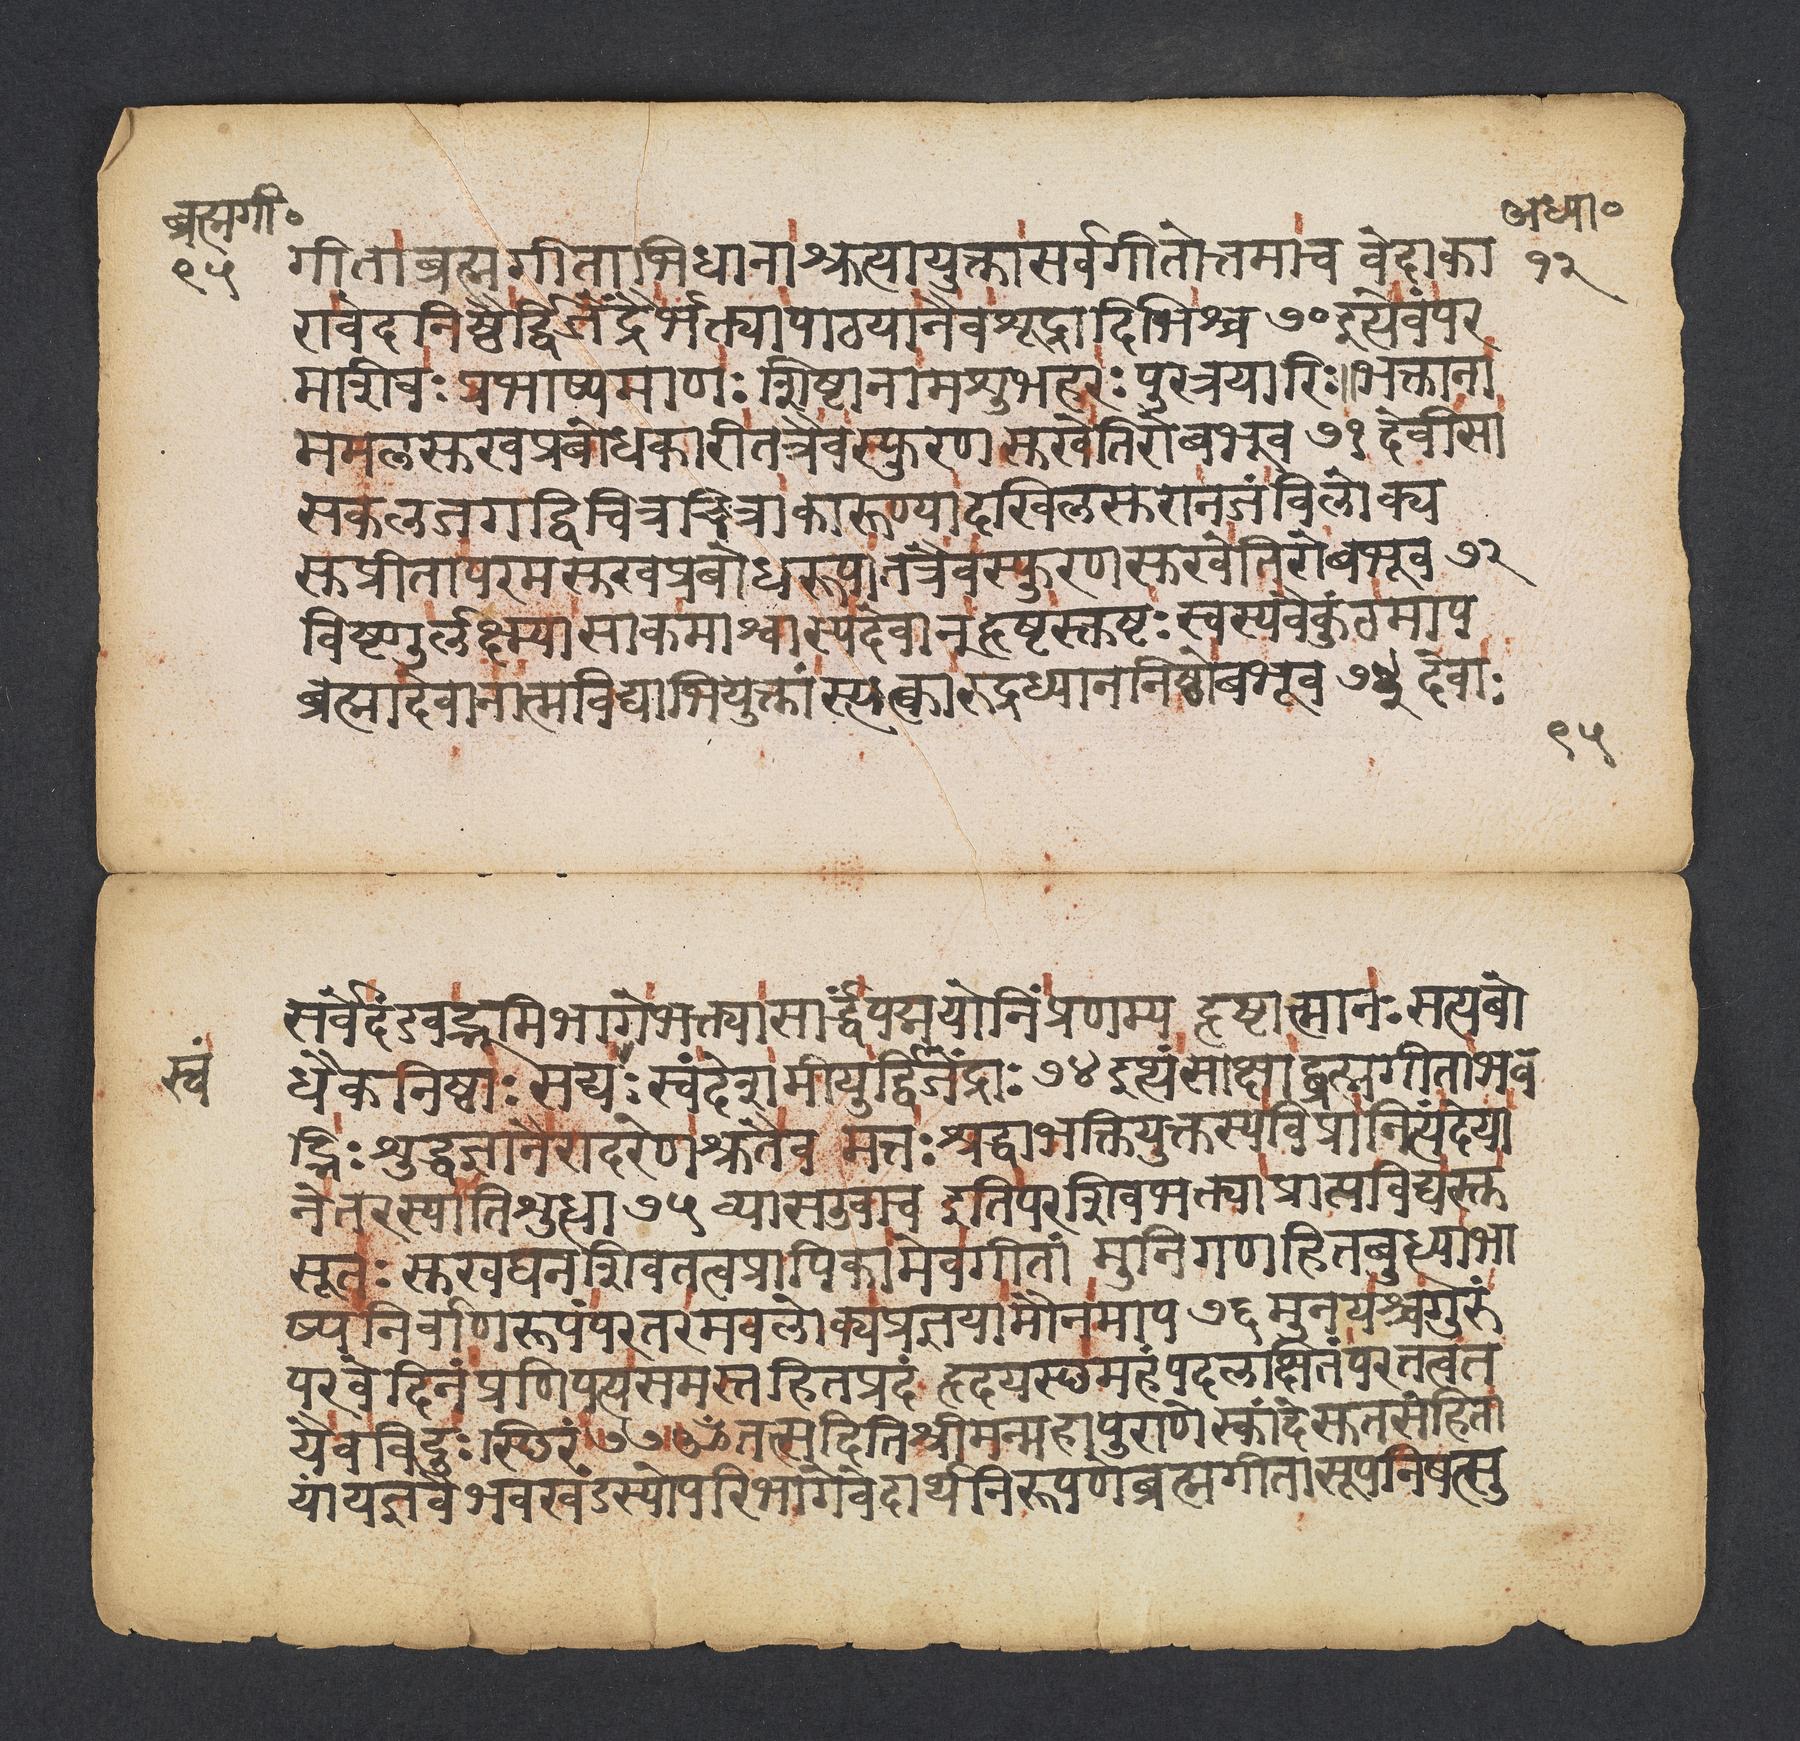 ब्रह्मगी॰
९५
अध्या॰
१२
गीताब्रह्मगीताभिधानाश्रुत्यायुक्तासर्वगीतोत्तमाच वेदाका
रावेदनिष्ठैर्द्विजेंद्रैर्भक्त्यापाठयानैवशूद्रादिभिश्च ७० इत्येवंपर
मशिवः प्रभाष्यमाणः शिष्टानामशुभहरः पुरत्रयारिः॥भक्ताना
ममलसुखप्रबोधकारीतत्रैवस्फुरणसुखेतिरोबभूव ७१ देवीसा
सकलजगद्विचित्रचित्राकारुण्यादखिलसुरानजंविलोक्य
सुप्रीतापरमसुखप्रबोधरूपातत्रैवस्फुरणसुखेतिरोबभूव ७२
विष्णुर्लक्ष्म्यासाकमाश्वास्यदेवान्हृष्टस्तुष्टः स्वस्यवैकुंठमाप
ब्रह्मादेवानात्मविद्याभियुक्तांस्त्यक्त्वारुद्रध्याननिष्ठोबभूव ७३ देवाः
९५
सर्वेदंडवद्भूमिभागेभक्त्यासार्द्धंपद्मयोनिंप्रणम्य हृष्टात्मानः सत्यबो
स्वं
धैकनिष्ठाः सद्यः स्वंदेशमीयुर्द्विजेंद्राः ७४ इत्थंसाक्षाद्ब्रह्मगीताभव
द्भिः शुद्धज्ञानैरादरेणश्रुतैव मत्तः श्रद्धाभक्तियुक्तस्यविप्रानित्यंदेया
नेतरस्यातिशुध्धा ७५ व्यासउवाच इतिपरशिवभक्त्याप्राप्तविद्यस्तु
सूतः सुखघनशिवतत्वप्रापिकामेवगीतां मुनिगणहितबुध्याभा
ष्यनिर्वाणरूपंपरतरमवलोक्यप्रज्ञयामौनमाप ७६ मुनयश्चगुरुं
परवेदिनंप्रणिपत्यसमस्तहितप्रदं हृदयस्छमहंपदलक्षितंपरतत्वत
यैवविदुः स्छिरं ७७ ॐतत्सदितिश्रीमन्महापुराणेस्कांदेसूतसंहिता
यांयज्ञवैभवखंडस्योपरिभागेवेदार्थनिरूपणेब्रह्मगीतासूपनिषत्सु